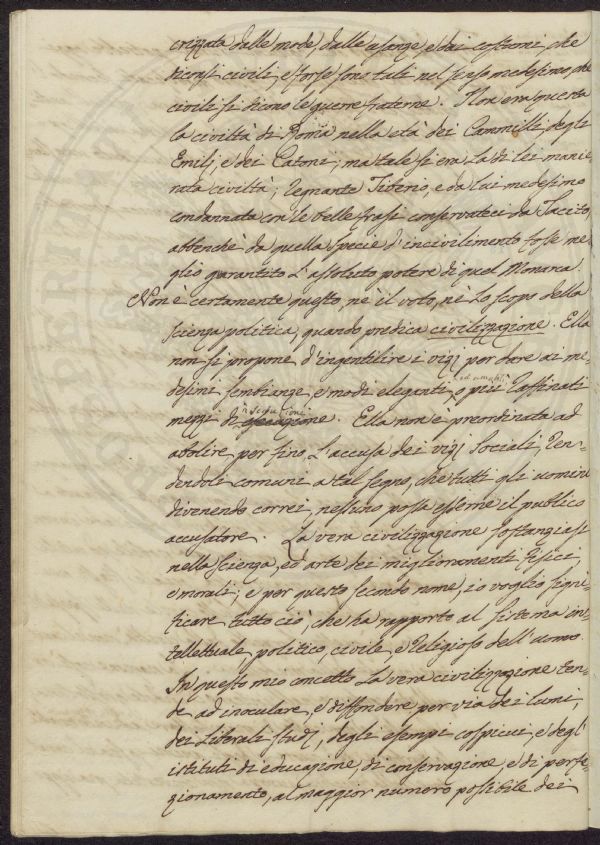 crizzata dalle mode, dalle usanze, e dai costumi, che
diconsi civili, e forse sono tali nel senso medesimo, che
civili si dicono le guerre fraterne. Non era questa
la civiltà di Roma nella età dei Cammilli, degli
Emilj, e dei Catoni; ma tale si era la di lei manie-
rata civiltà, regnante Tiberio, e da lui medesimo
condannata con le belle frasi conservateci da Tacito,
abbenchè da quella specie d'incivilimento fosse me-
glio garantito l'assoluto potere di quel Monarca.
Non è certamente questo, nè il voto, nè lo scopo della
scienza politica, quando predica civilizzazione. Ella
non si propone, d'ingentilire i vizj per dare ai me-
desimi sembianze, e modi eleganti, ed amabili, o più raffinati
mezzi di seduzioni. Ella non è preordinata ad
abolire per fino l'accusa dei vizj sociali, ren-
dendoli comuni a tal segno, che tutti gli uomini
divenendo correi, nessuno possa esserne il publico
accusatore. La vera civilizzazione sostanziasi
nella scienza, ed arte dei miglioramenti fisici,
e morali; e per questo secondo nome, io voglio signi-
ficare tutto ciò, che ha rapporto al sistema in-
tellettuale, politico, civile, e religioso dell'uomo.
In questo mio concetto la vera civilizzazione ten-
de ad inoculare, e diffondere per via dei lumi,
dei liberali studj, degli esempi cospicui, e degl'
istituti di educazione, di conservazione, e di perfe-
zionamento, al maggior numero possibile dei